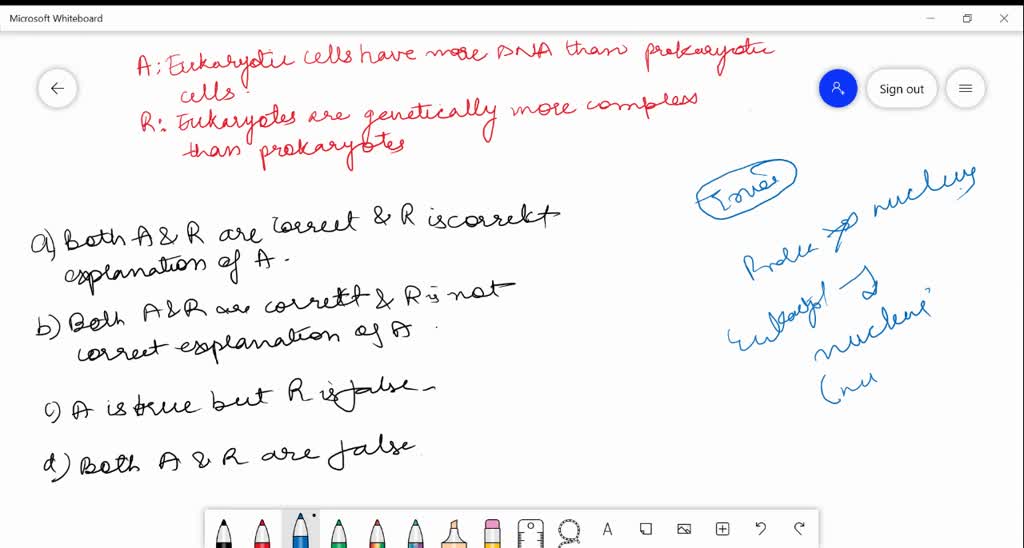 Microsoft Whiteboard
A: Eukaryotic cells have more DNA than prokaryotic
cells.
Sign out
R: Eukaryotes are genetically more compless
than prokaryotes
nucleus
a) Both A & R are correct & R is correkt
explanation of A.
b) Both A & R are correkt & R is not
correct explanation of A.
nucleus
(nu
c) A is true but R is false.
d) Both A & R are false
A